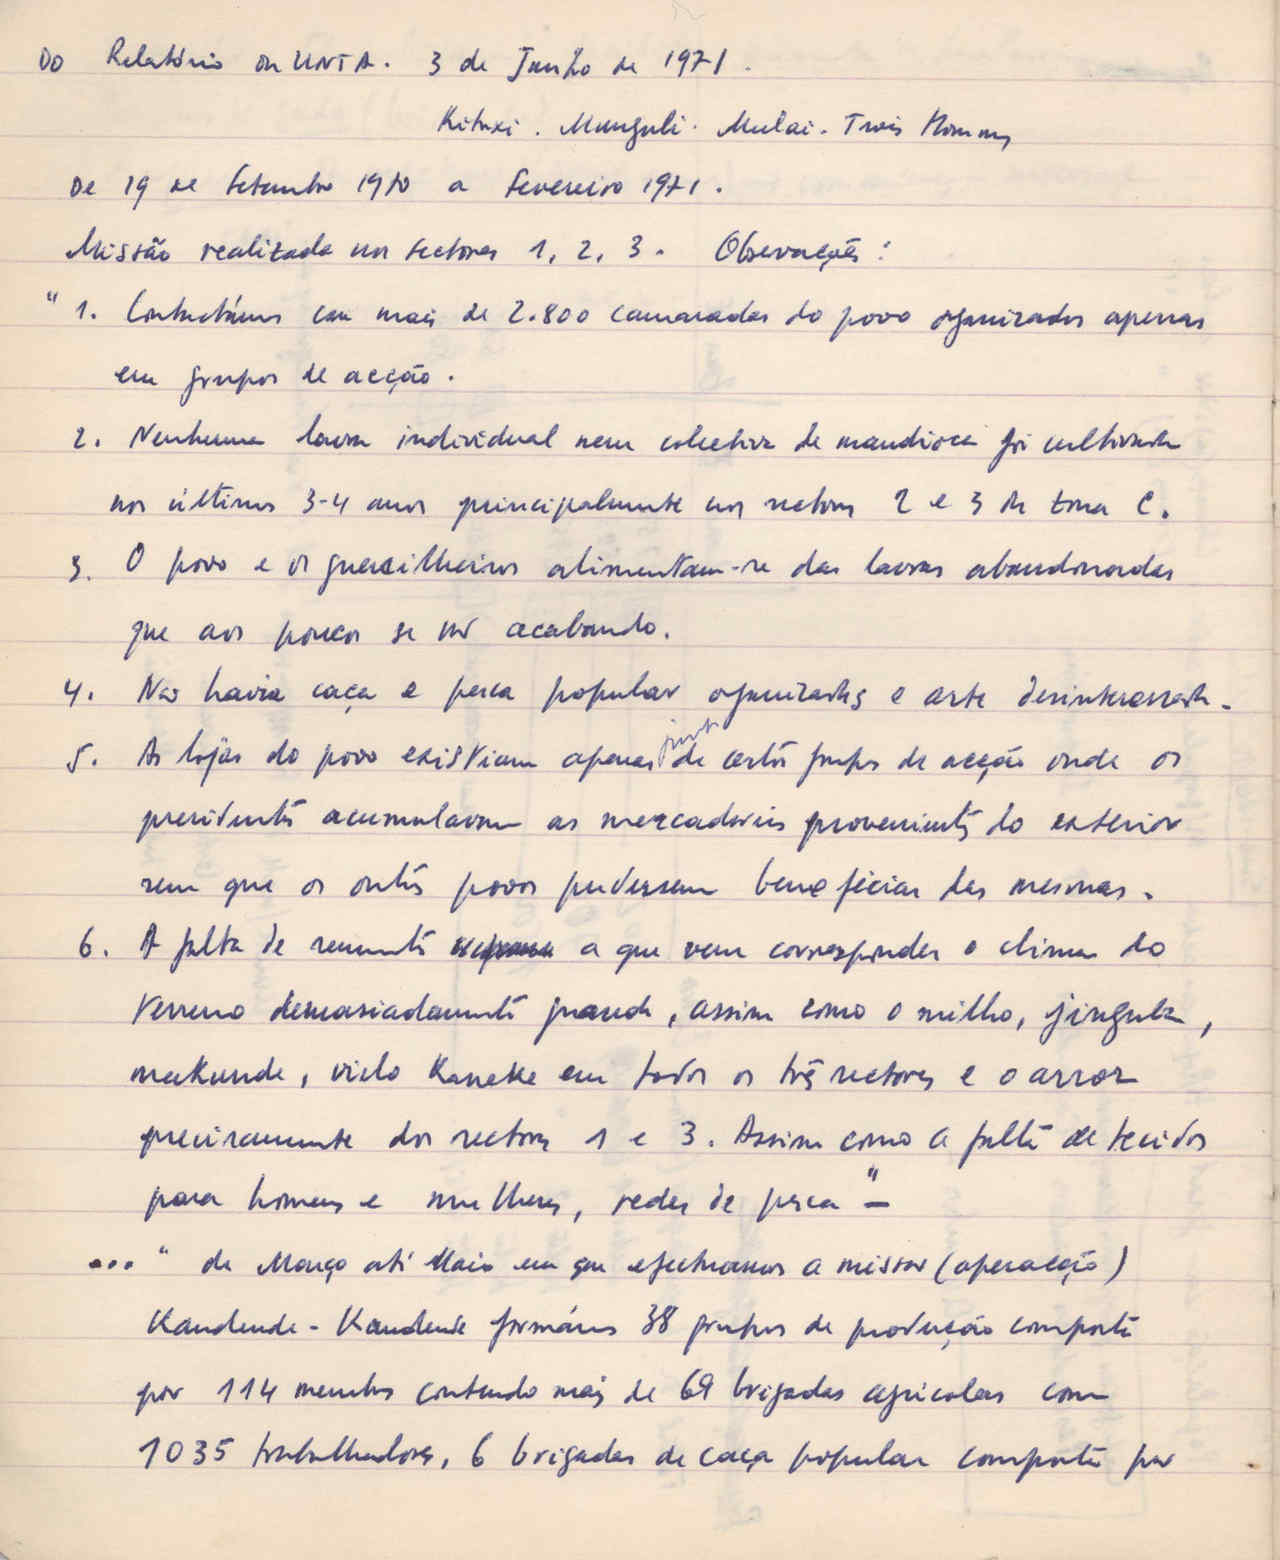 Do Relatório da UNTA. 3 de Junho de 1971.
Kituxi. Munguli. Mulai. Trois Hommes
De 19 de Setembro 1970 a Fevereiro 1971.
Missão realizada nos sectores 1, 2, 3. Observações:
"1. Contactámos com mais de 2.800 camaradas do povo organizados apenas
em grupos de acção.
2. Nenhuma lavra individual nem colectiva de mandioca foi cultivada
nos últimos 3-4 anos principalmente nos sectores 2 e 3 da zona C.
3. O povo e os guerrilheiros alimentam-se das lavras abandonadas
que aos poucos se vão acabando.
4. Não havia caça e pesca popular organizadas e arte desinteressada.
5. As lojas do povo existiam apenas junto de certos grupos de acção onde os
presidentes acumulavam as mercadorias provenientes do exterior
sem que os outros povos pudessem beneficiar das mesmas.
6. A falta de sementes a que vem corresponder o clima do
terreno demasiadamente grande, assim como o milho, jinguba,
makunde, vielo Kaneke em todos os três sectores e o arroz
precisamente dos sectores 1 e 3. Assim como a falta de tecidos
para homens e mulheres, redes de pesca" —
... "de Março até Maio em que efectuamos a missão (operação)
Kandende - Kandende formámos 38 grupos de produção compostos
por 114 membros contendo mais de 69 brigadas agrícolas com
1035 trabalhadores, 6 brigadas de caça popular compostas por